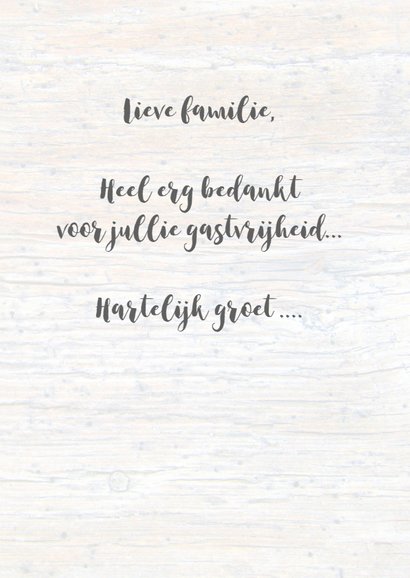 Lieve familie,
Heel erg bedankt
voor jullie gastvrijheid...
Hartelijk groet ....